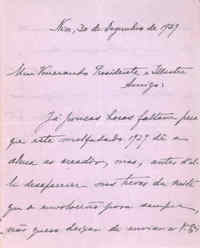 Rio, 30 de Dezembro de 1929
Meu Venerando Presidente e Illustre
Amigo:
Já poucas horas faltam para
que este malfadado 1929 dê a
alma ao creador, mas, antes d'el-
le desaparecer nas trevas da noite
que o envolverão para sempre,
não quero deixar de enviar a V. Ex